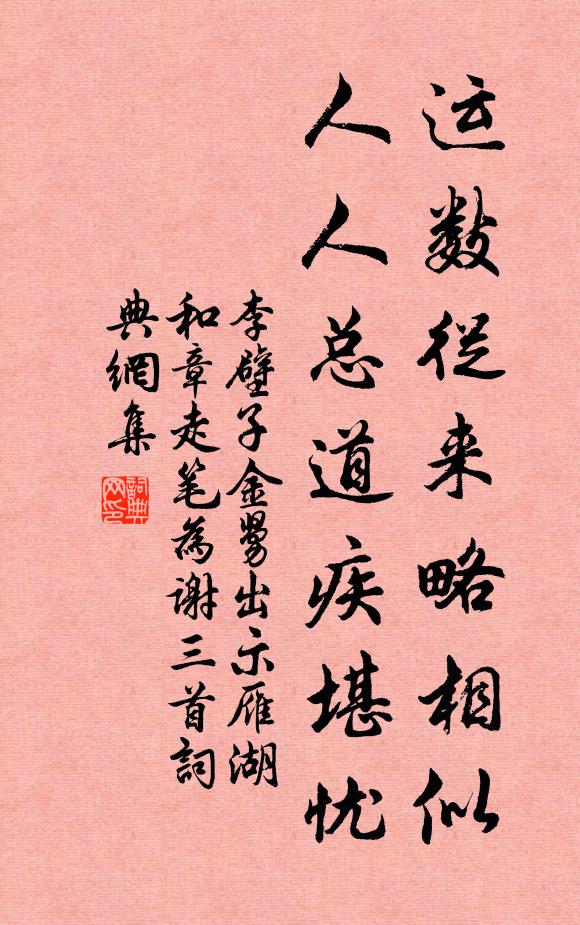 运数从来略相似
人人总道疾堪忧
李壁子金舅出示雁湖
和章走笔为谢三首词
典網集
詞典網印